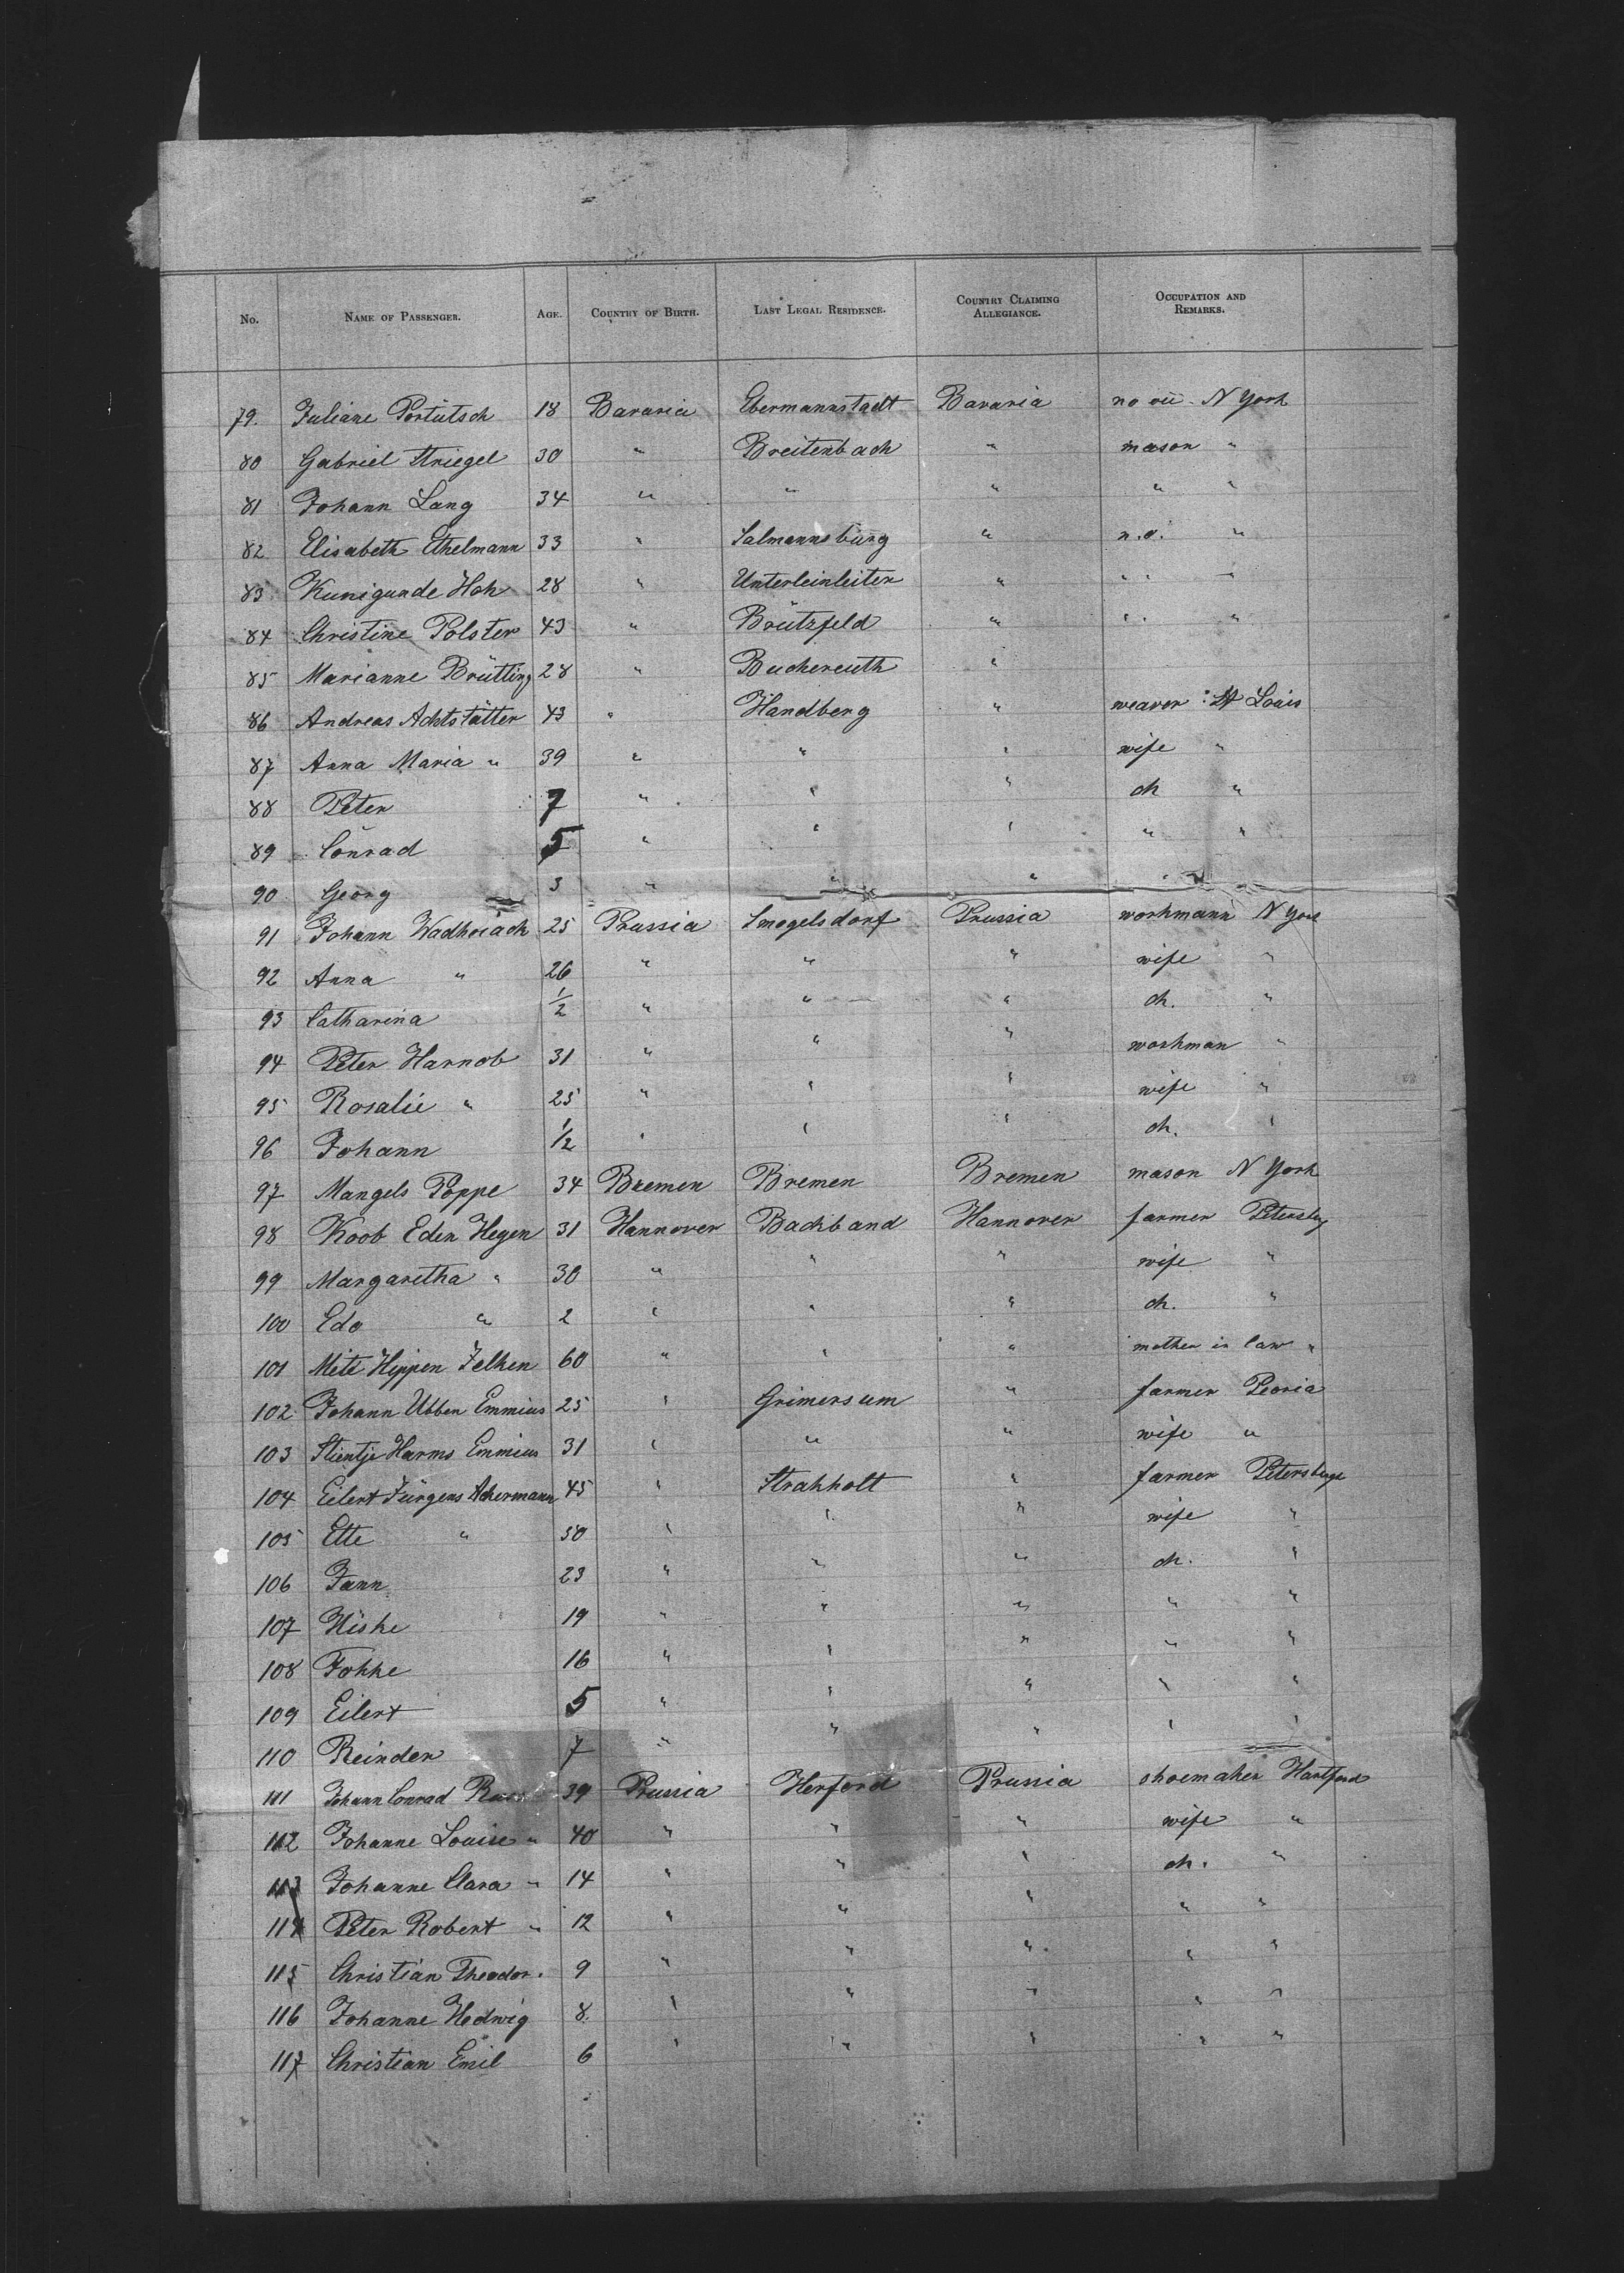 No. NAME OF PASSENGER. AGE. COUNTRY OF BIRTH. LAST LEGAL RESIDENCE. COUNTRY CLAIMING ALLEGIANCE. OCCUPATION AND REMARKS.
79. Juliane Portütsch 18 Bavaria Ebermannstadt Bavaria no N York
80 Gabriel Striegel 30 " Breitenbach " mason "
81 Johann Lang 34 " " " " "
82 Elisabeth Ethelmann 33 " Salmannsburg " n.o. "
83 Kunigunde Hoh 28 " Unterleinleiter " " " "
84 Christine Polster 43 " Brützfeld " " " "
85 Marianne Brütting 28 " Buchereuth "
86 Andreas Achtstätter 43 " Handberg " weaver St Louis
87 Anna Maria " 39 " " " wife "
88 Peter 7 " " " ch "
89 Conrad 5 " " " " "
90 Georg 3 " " " "
91 Johann Wadhoiach 25 Prussia Smogelsdorf Prussia workmann N York
92 Anna " 26 " " " wife "
93 Catharina 1/2 " " " ch. "
94 Peter Harnob 31 " " " workman "
95 Rosalie " 25 " " " wife "
96 Johann 1/2 " " " ch. "
97 Mangels Poppe 34 Bremen Bremen Bremen mason N York
98 Koob Eden Hegen 31 Hannover Backband Hannover farmer Petersbg
99 Margaretha " 30 " " " wife "
100 Edo " 2 " " " ch. "
101 Mete Hippen Jelken 60 " " " mother in law "
102 Johann Ubben Emmius 25 " Grimersum " farmer Peoria
103 Stientje Harms Emmius 31 " " " wife "
104 Eilert Jürgens Ackermann 45 " Strakholt " farmer Petersburg
105 Ette " 50 " " " wife "
106 Jann 23 " " " ch. "
107 Hiske 19 " " " " "
108 Fokke 16 " " " " "
109 Eilert 5 " " " " "
110 Reinder 7 " " " " "
111 Johann Conrad 39 Prussia Herford Prussia shoemaker Hartford
112 Johanne Louise " 40 " " " wife "
113 Johanne Clara " 14 " " " ch. "
114 Peter Robert " 12 " " " " "
115 Christian Theodor " 9 " " " " "
116 Johanne Hedwig 8. " " " " "
117 Christian Emil 6 " " " " "